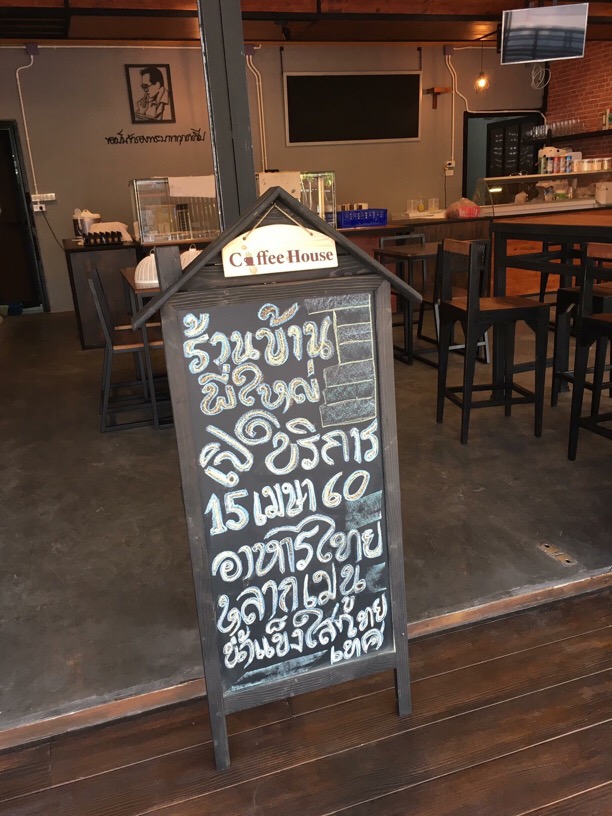 ขอเป็นข้ารองพระบาททุกชาติไป
Coffee House
ร้านบ้าน
พี่ใหญ่
บริการ
15 เมษา 60
อาหารไทย
หลากเมนู
น้ำแข็งใสไทย
เทศ